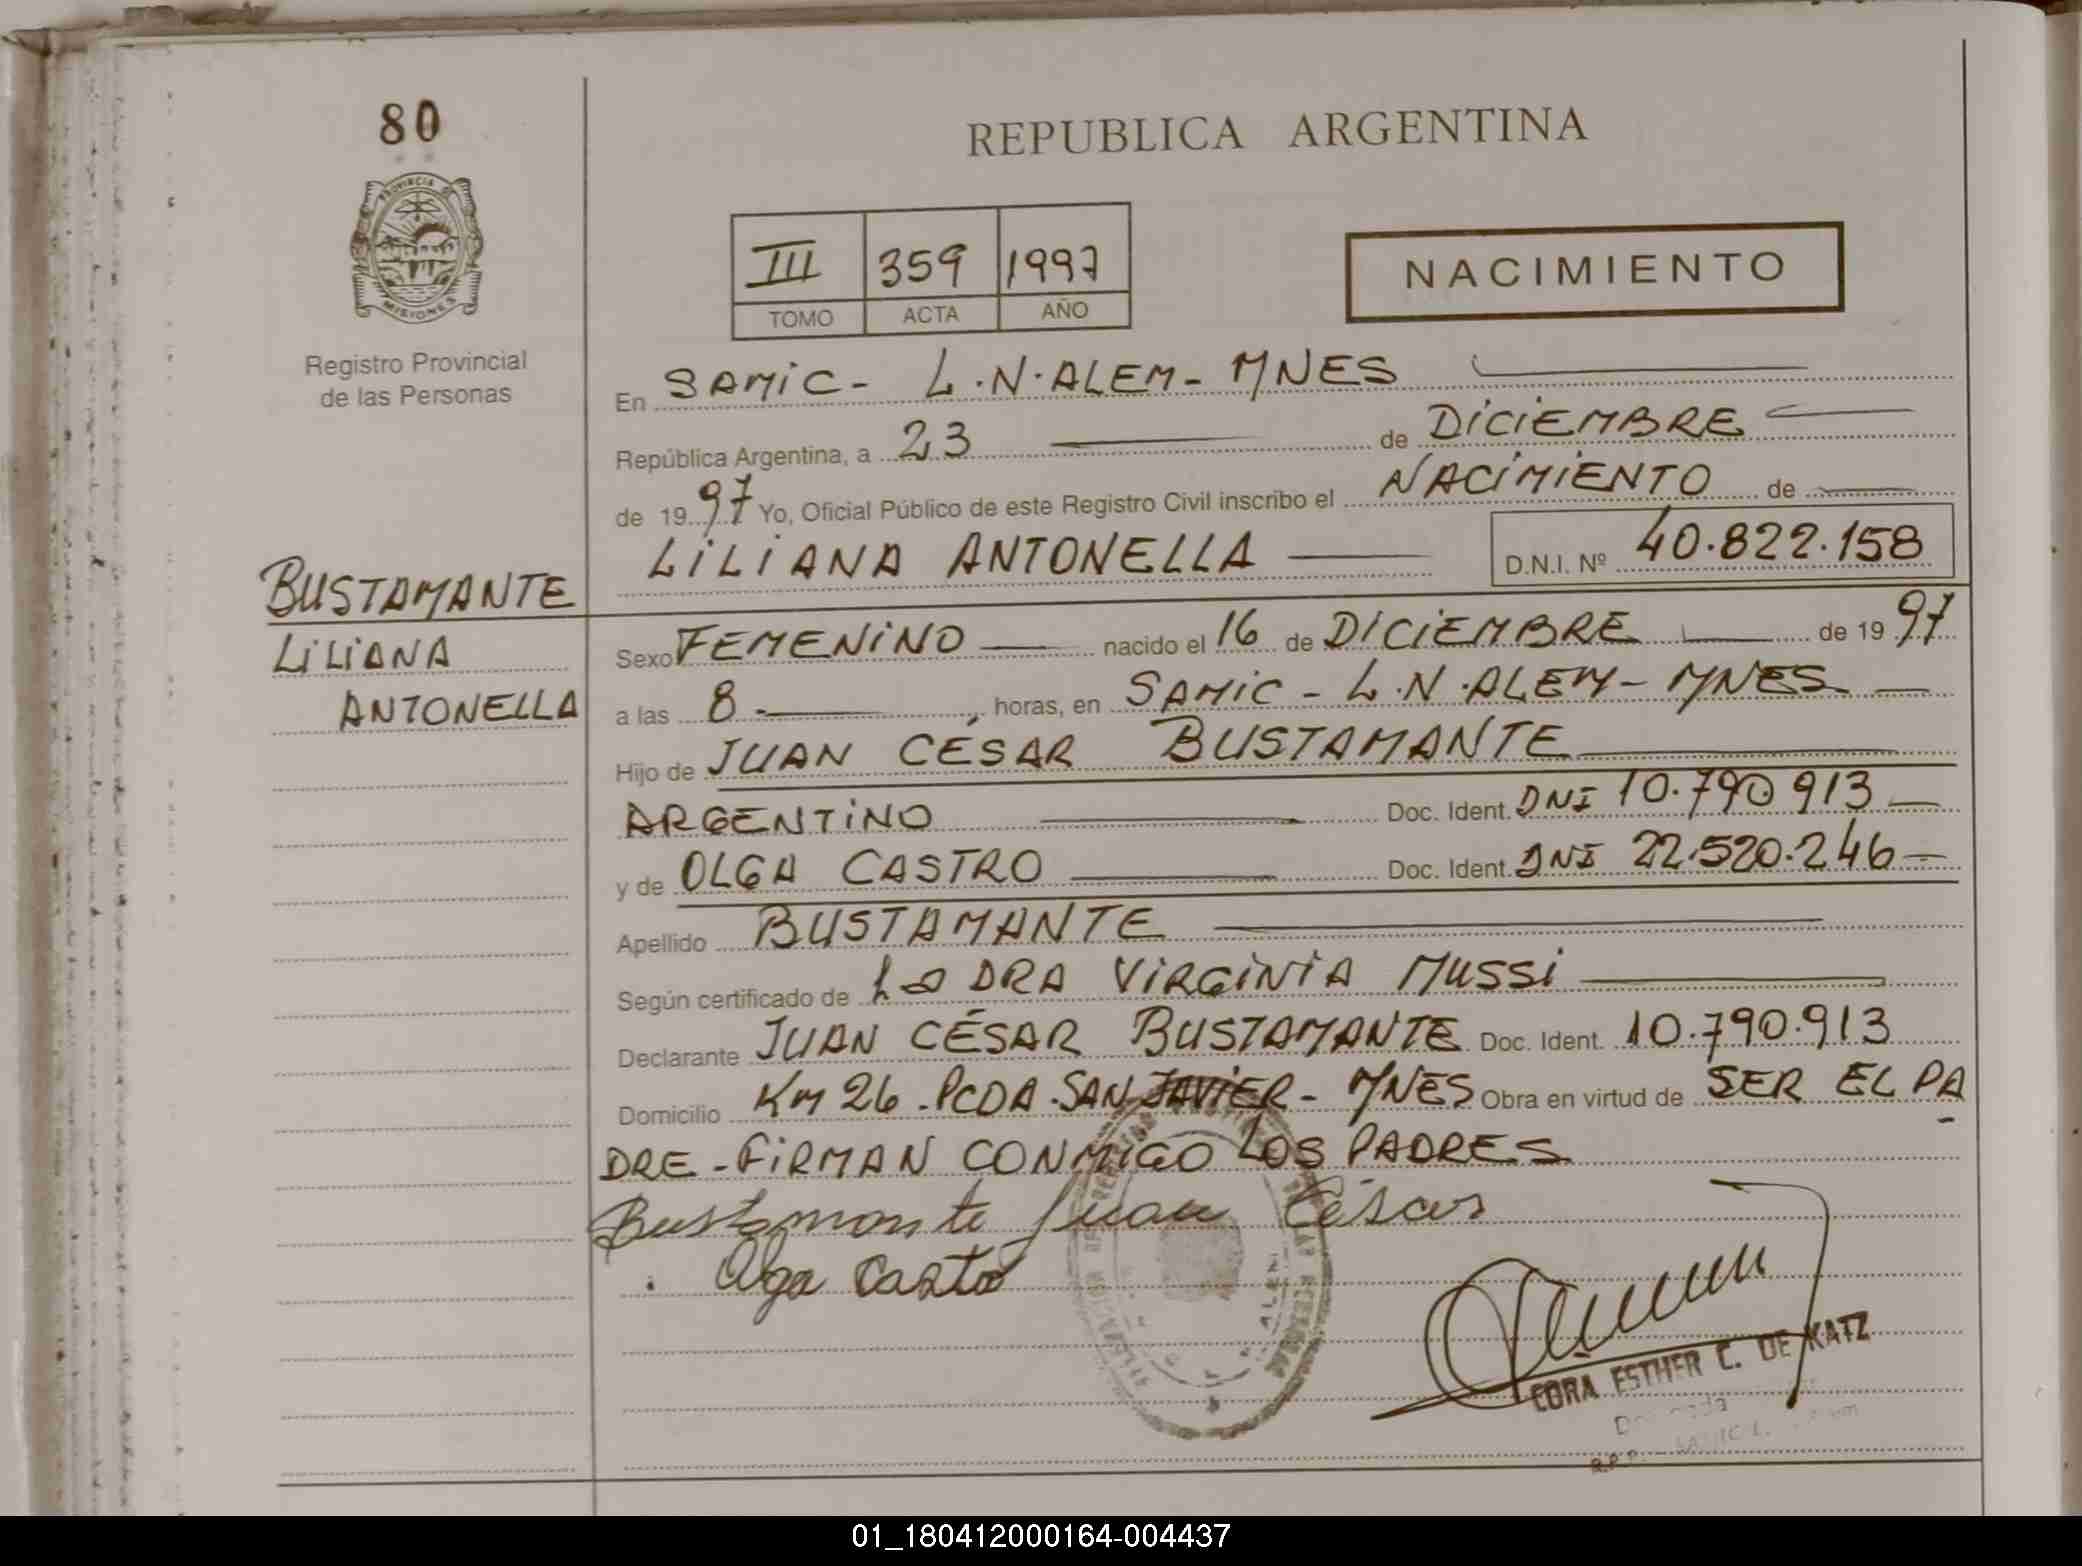 80
REPUBLICA ARGENTINA
PROVINCIA DE MISIONES
III 359 1997
TOMO ACTA AÑO
NACIMIENTO
Registro Provincial
de las Personas
En SAMIC - L.N.ALEM - MNES
República Argentina, a 23 de DICIEMBRE
de 1997 Yo, Oficial Público de este Registro Civil inscribo el NACIMIENTO de
LILIANA ANTONELLA D.N.I. Nº 40.822.158
BUSTAMANTE
LILIANA
ANTONELLA
Sexo FEMENINO nacido el 16 de DICIEMBRE de 1997
a las 8 horas, en SAMIC - L.N.ALEM - MNES
Hijo de JUAN CÉSAR BUSTAMANTE
ARGENTINO Doc. Ident. DNI 10.790.913
y de OLGA CASTRO Doc. Ident. DNI 22.520.246
Apellido BUSTAMANTE
Según certificado de La DRA VIRGINIA MUSSI
Declarante JUAN CÉSAR BUSTAMANTE Doc. Ident. 10.790.913
Domicilio KM 26 - PCDA - SAN JAVIER - MNES Obra en virtud de SER EL PA
DRE - FIRMAN CONMIGO LOS PADRES
Bustamante Juan César
Olga Castro
CORA ESTHER C. DE KATZ
01_180412000164-004437